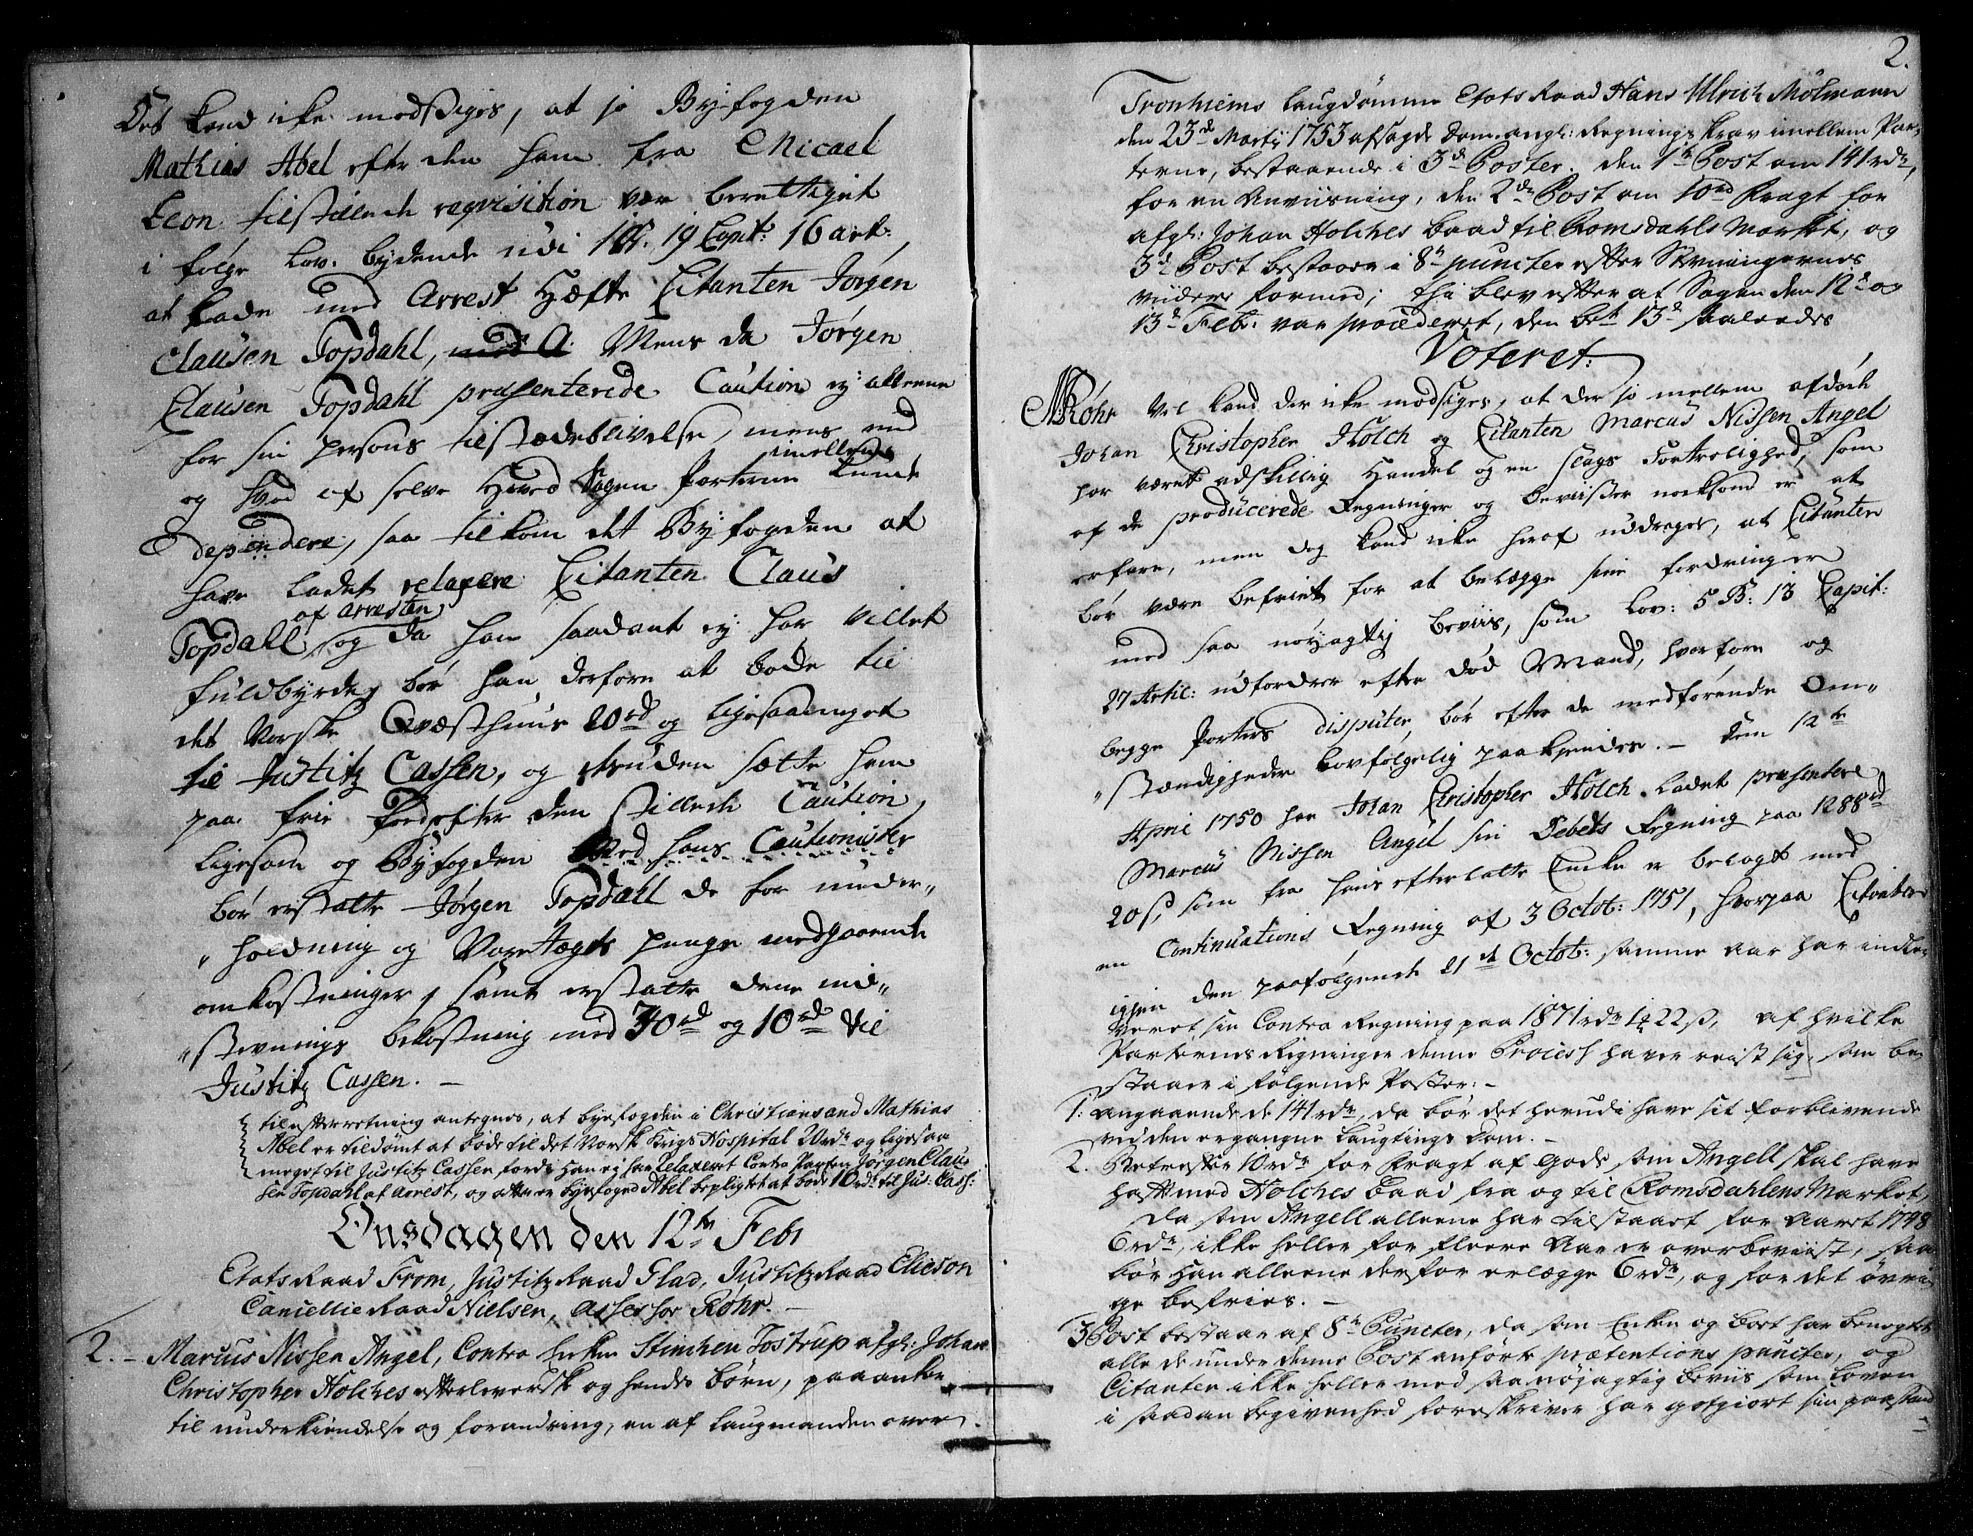 Det kand icke modsiges, at jo Byfogden
Mathias Abel efter den ham fra Micael
Leon tilstillede reqvisition var berettiget
i følge Lov: bydende udi 1 B: 19 Capit: 16 art:
at lade med Arrest hæfte Citanten Jørgen
Clausen Topdahl, Mens da Jørgen
Clausen Topdahl præsenterede Caution ej alleene
for sin persons tilstædeblivelse, mens end
og hvad af selve Hoved Sagen Parterne imellem kunde
dependere, saa tilkom det Byfogden at
have ladet relaxere Citanten Claus
Topdall af arresten, og da han saadant ej har villet
fuldbyrde, bør han derfore at bøde til
det Norske Qvæsthuus 20 rd og ligesaameget
til Justitz Cassen, og strax den sætte ham
paa frie Foed efter den stillede Caution,
ligesom og Byfogden med hans Cautionister
bør erstatte Jørgen Topdall de for under-
"holdning og Varetægts penge medgaaende
omkostninger, samt erstatte denne ind-
"stevnings bekostning med 30 rd og 10 rd til
Justitz Cassen. –
til efterretning antegnes, at byefogden i Christiansand Mathias
Abel er tildømt at bøde til det Norsk Krigs Hospital 20 rdr og ligesaa
meget til Justitz Cassen, fordi han ej har relaxeret Contra Parten Jørgen Clau-
sen Topdahl af Arrest, og atter er byefoged Abel bepligtet at bøde 10 rdr til Jus: Cass:
Onsdagen den 12te Febr
Etats Raad From, Justitz Raad Glad, Justitz Raad Elieson
Cancellie Raad Nielsen, Assessor Røhr. –
2. – Marcus Nissen Angel, Contra Encken Stinchen Tostrup afg: Johan
Christopher Holches efterleverske og hendes børn, paaancke
til underkiendelse og forandring, en af Laugmanden over
2.
Tronhiems Laugdømme Etats Raad Hans Ulrich Mölmann
den 23de Martij 1753 afsagde dom angl: Regnings Krav imellem Par-
terne, bestaaende i 3de Poster. den 1te Post om 141 rdr,
for en Anviisning, den 2den Post om 10 rd Fragt for
afg: Johan Holches Baad til Romsdahls Marked, og
3de Post bestaaer i 8te puncter efter Stevningernes
viidere formeld; thi blev efter at Sagen den 12de og
13de Febr: var procederet, den bte 13de saaledes
Voteret:
NRøhr Vel kand der icke modsiges, at der jo mellem afdøde
Johan Christopher Holch og Citanten Marcus Nissen Angel
har været adskillig Handel og en slags Fortrolighed, som
af de producerede Regninger og beviiser nocksom er at
erfare, men dog kand icke heraf uddrages, at Citanten
bør være befriet for at belægge sine fordringer
med saa nøyagtig beviis, som Lov: 5 B: 13 Capit:
27 Artic: udfordrer efter død Mand, hvorfore og
begge Parters disputer, bør efter de medførende Om-
"stændigheder Lovfølgelig paakiendes. – den 12te
April 1750 har Johan Christopher Holch ladet præsentere
Marcus Nissen Angel sin Debets Regning paa 1288 rd
20 s, som fra hans efterlatte Encke er belagt med
en Continuations Regning af 3 Octob: 1751, hvorpaa Citanten
igien den paafølgende 21de Octob: samme aar har indle-
veret sin Contra Regning paa 1871 rdr 1 22 s, af hvilke
Parternes Regninger denne Process haver reist sig, som be-
staaer i følgende Poster: –
1. angaaende de 141 rdr, da bør det herudi have sit forblivende
ved den ergangne Laugtings dom. –
2. Betreffer 10 rdr for fragt af gods som Angell skal have
haft med Holches baad fra og til Romsdahlens Marked,
da som Angell alleene har tilstaaet for aaret 1748
6 rdr, icke heller for fleere Aar er overbeviist, saa
bør han alleene derfor erlægge 6 rdr, og for det øvri-
ge befries. –
3 Post bestaar af 8te Puncter, da som Encken og Boet har benegtet
alle de under denne Post anførte prætentions puncter, og
Citanten icke heller med saa nøjagtig beviis som Loven
i saadan begivenhed foreskriver har gotgiort sin paastand